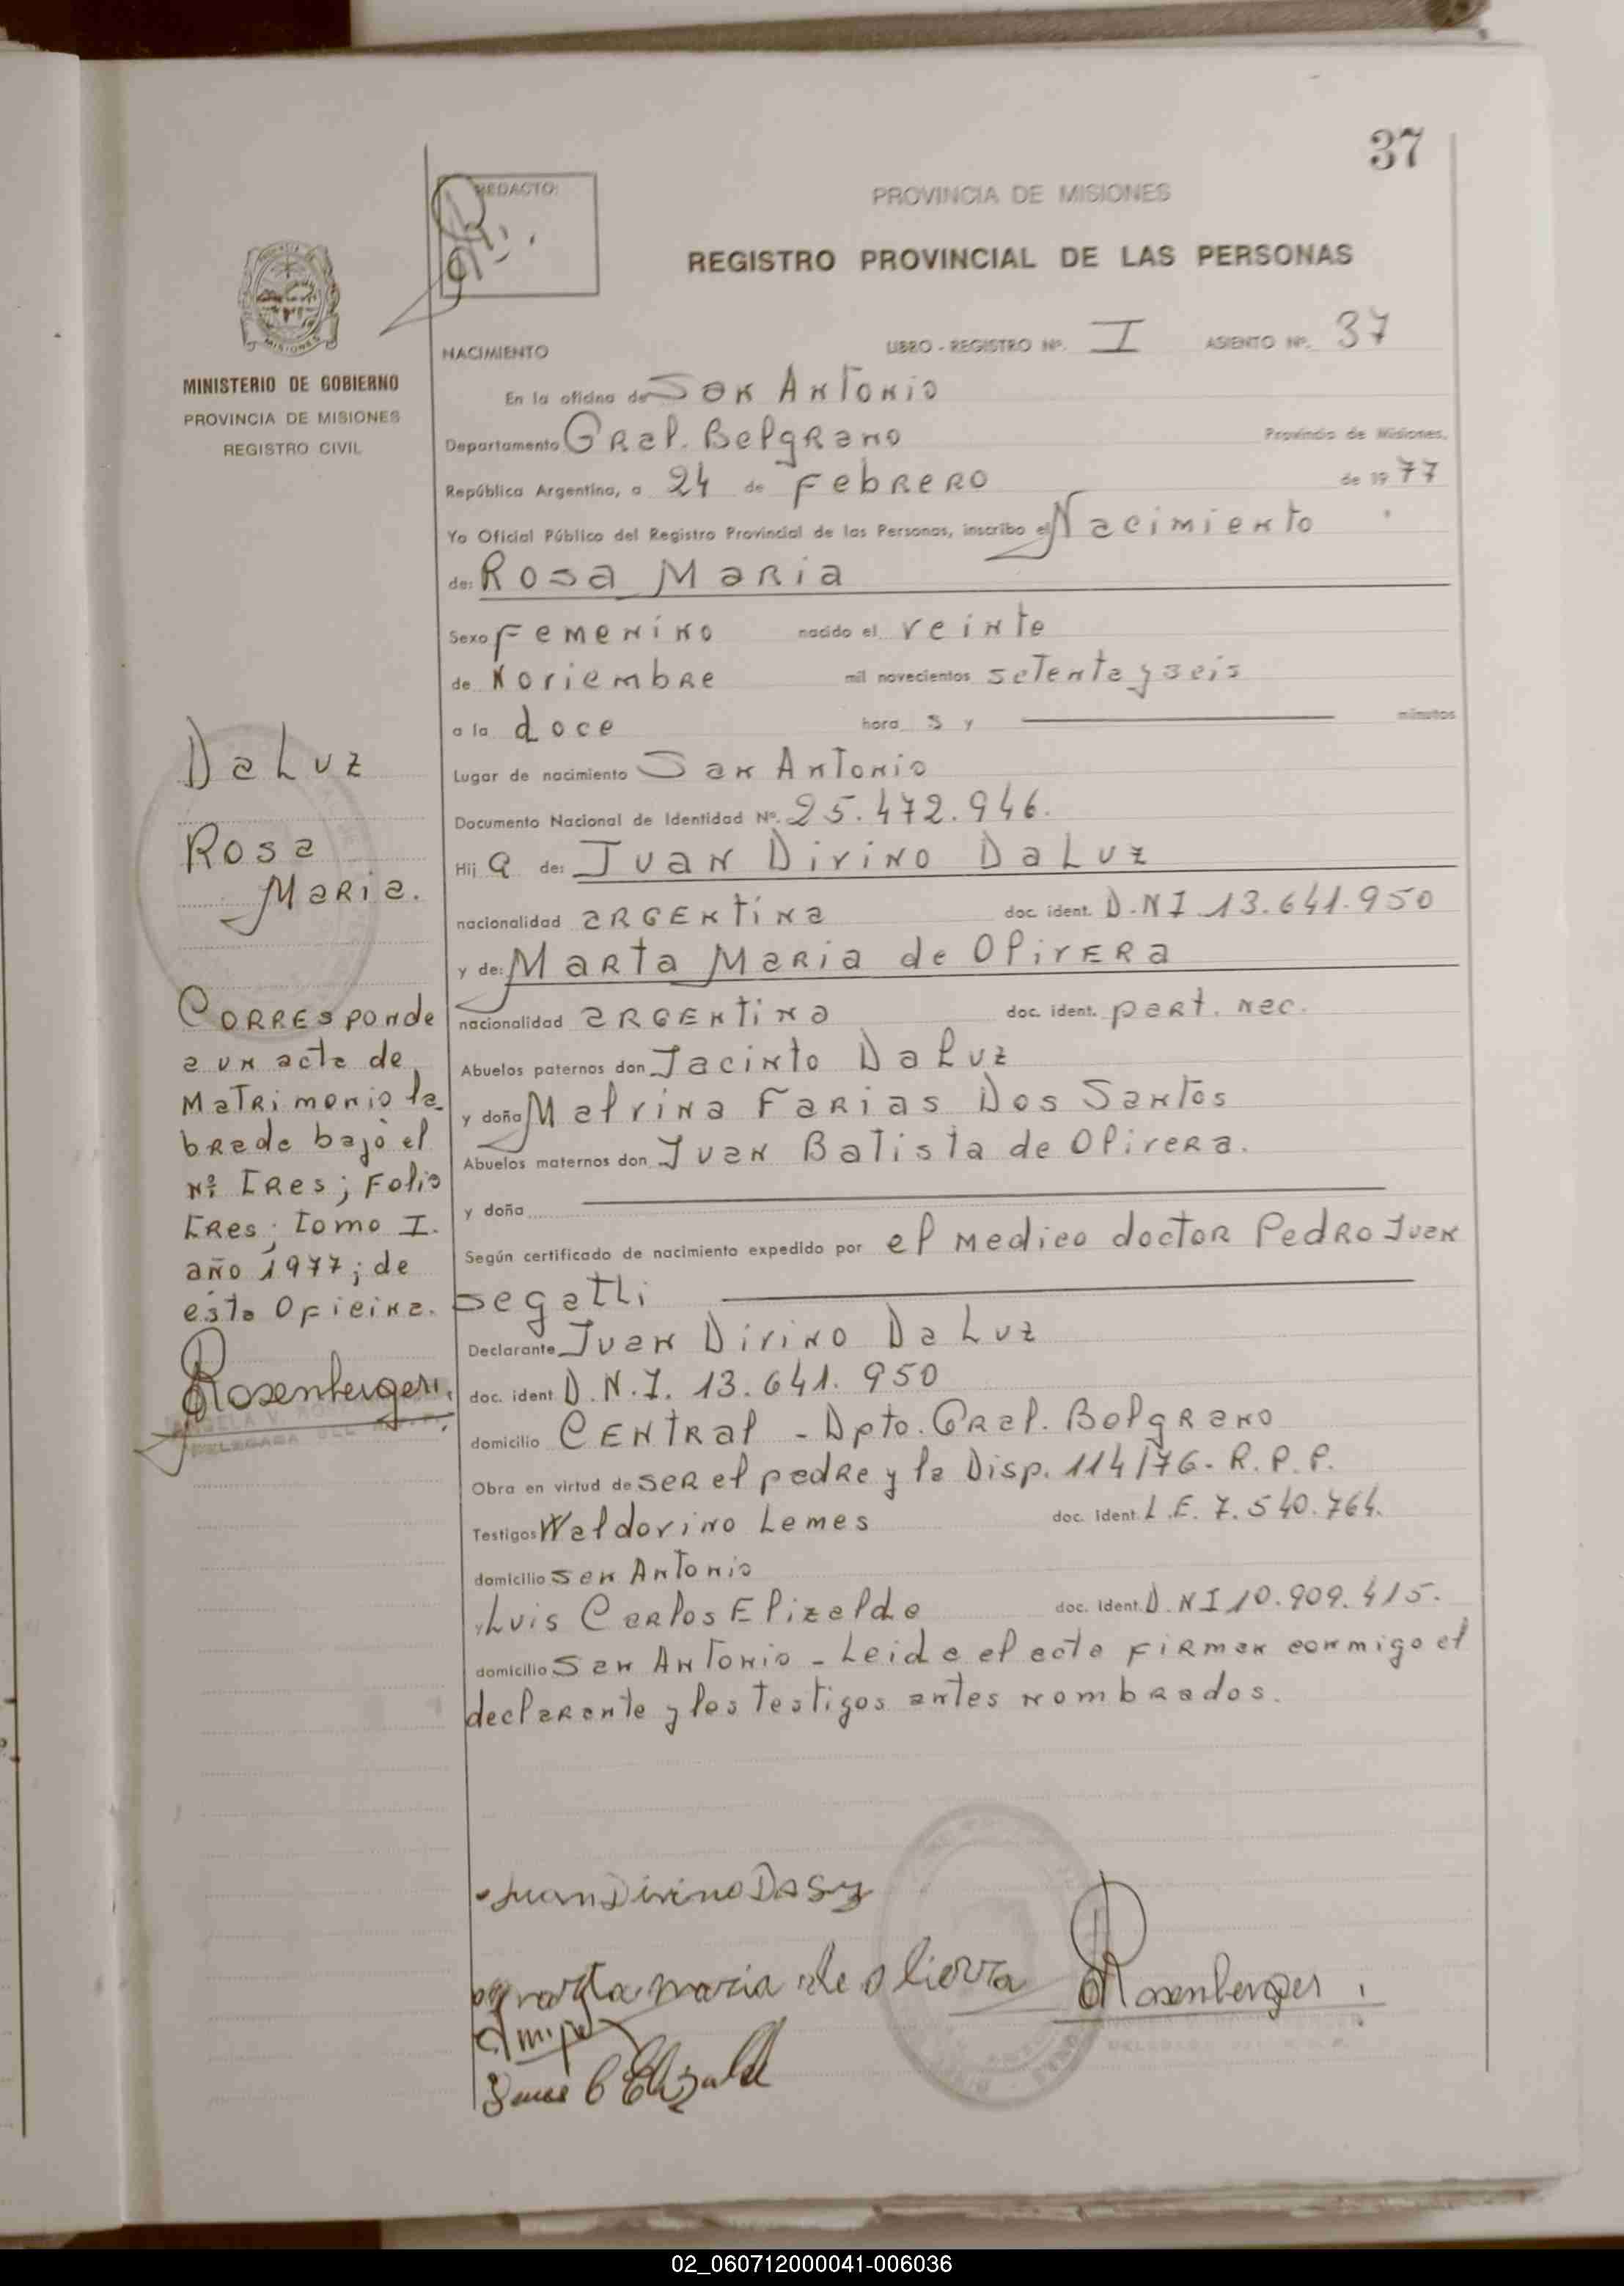 37
REDACTO:
PROVINCIA DE MISIONES
REGISTRO PROVINCIAL DE LAS PERSONAS
MISIONES
MINISTERIO DE GOBIERNO
PROVINCIA DE MISIONES
REGISTRO CIVIL
NACIMIENTO LIBRO - REGISTRO Nº. I ASIENTO Nº. 37
En la oficina de San Antonio
Departamento Gral. Belgrano Provincia de Misiones,
República Argentina, a 24 de Febrero de 1977
Yo Oficial Público del Registro Provincial de las Personas, inscribo el Nacimiento
de: Rosa Maria
Sexo Femenino nacido el veinte
de Noviembre mil novecientos setenta y seis
a la doce hora s y minutos
Lugar de nacimiento San Antonio
Documento Nacional de Identidad Nº. 25.472.946.
Hij a de: Juan Divino Da Luz
nacionalidad argentina doc. ident. D.N I 13.641.950
y de: Marta Maria de Olivera
nacionalidad argentina doc. ident. part. nec.
Abuelos paternos don Jacinto Da Luz
y doña Malvina Farias Dos Santos
Abuelos maternos don Juan Batista de Olivera.
y doña
Según certificado de nacimiento expedido por el Medico doctor Pedro Juan
Segatti
Declarante Juan Divino Da Luz
doc. ident. D.N.I. 13.641.950
domicilio Central - Dpto. Gral. Belgrano
Obra en virtud de ser el padre y la Disp. 114/76- R.P.P.
Testigos Waldovino Lemes doc. ident. L.E. 7.540.764.
domicilio San Antonio
y Luis Carlos Elizalde doc. ident. D.N I 10.909.415.
domicilio San Antonio - Leida el acta firman conmigo el
declarante y los testigos antes nombrados.
Da Luz
Rosa
Maria.
Corresponde
a un acta de
Matrimonio la-
brada bajo el
Nº Tres; Folio
Tres; tomo I.
año 1977; de
ésta Oficina.
Rosenberger
Juan Divino Da Luz
marta maria de olivera
Rosenberger
Luis C Elizalde
02_060712000041-006036